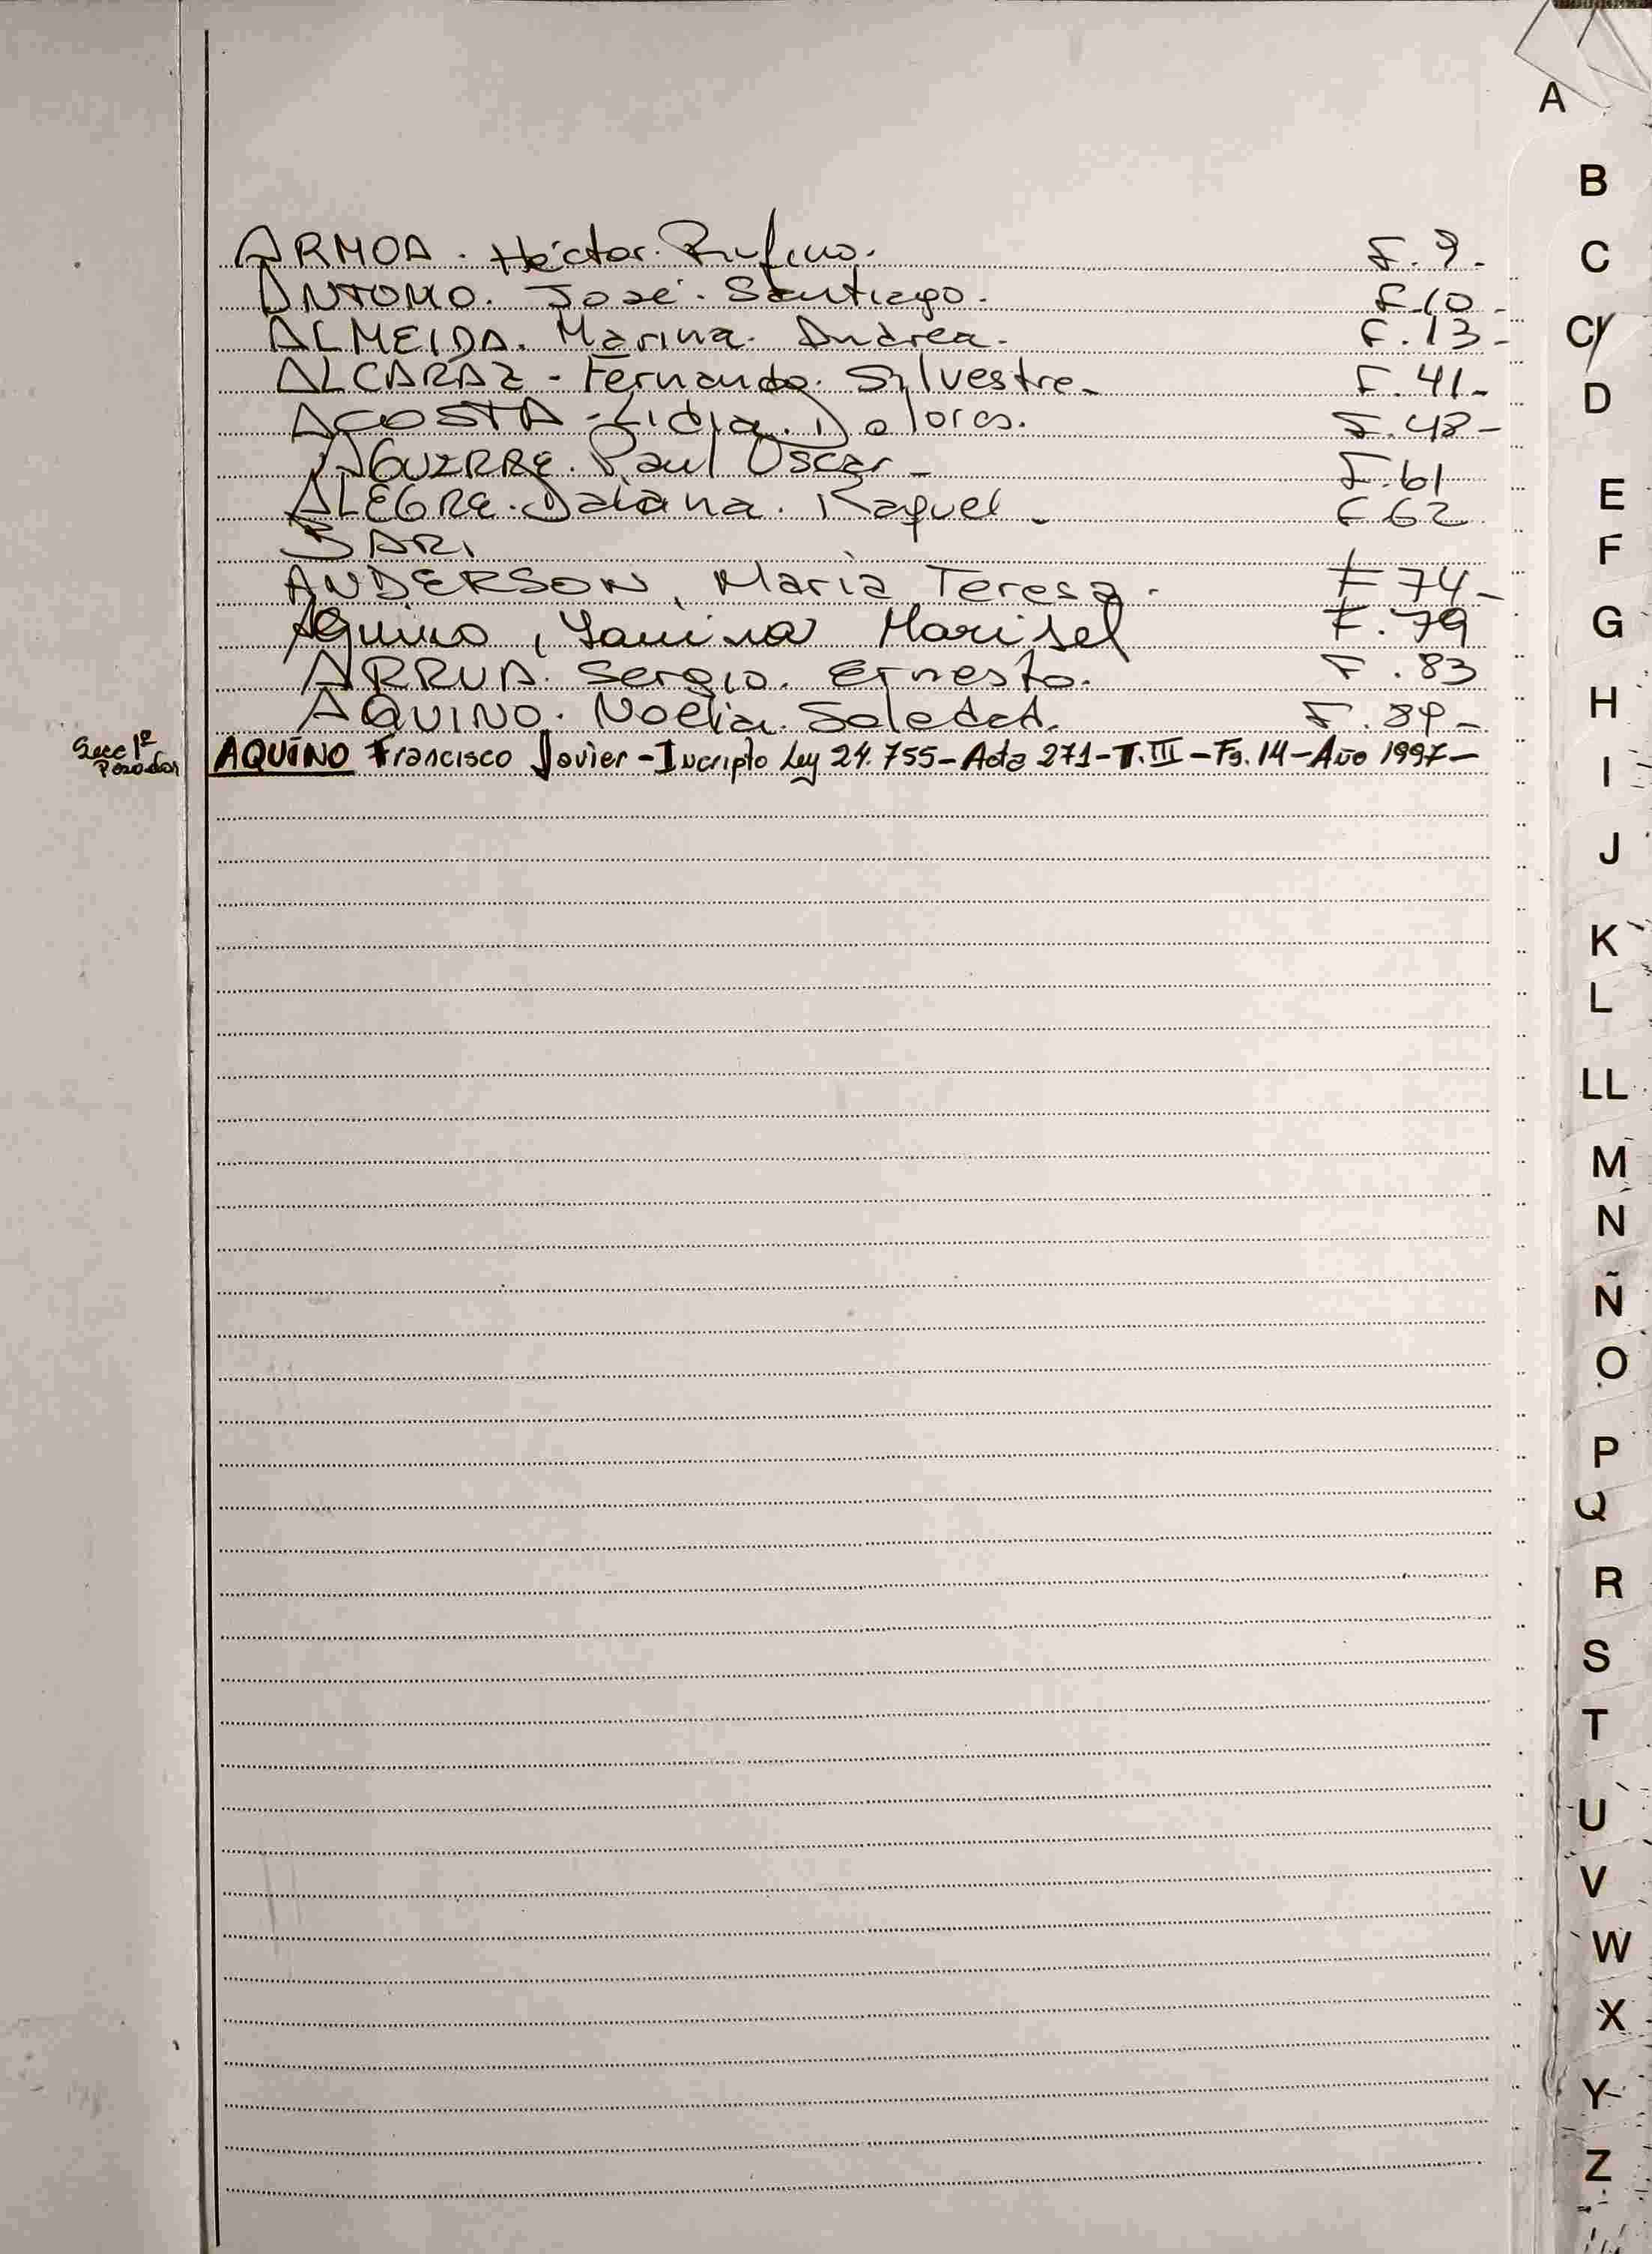 A
B
C
ARMOA. Héctor. Rufino. F. 9.-
ANTONIO. José. Santiago. F.10-
ALMEIDA. Marina. Andrea. F.13-
CH
ALCARAZ - Fernando. Silvestre_ F.41_
D
ACOSTA - Lidia. Dolores. F.48-
AGUERRE. Paul Oscar_ F.61
E
ALEGRE. Daiana. Raquel_ F.62
BARI
F
ANDERSON, María Teresa. F 74_
Aquino, Yanina Marisel F.79
G
ARRUA. Sergio. Ernesto. F.83
H
AQUINO. Noelia. Soledad. F.89_
Secc 1º Posadas AQUINO Francisco Javier - Incripto Ley 24.755 - Acta 271 - T. III - Fs. 14 - Año 1997 -
I
J
K
L
LL
M
N
Ñ
O
P
Q
R
S
T
U
V
W
X
Y
Z